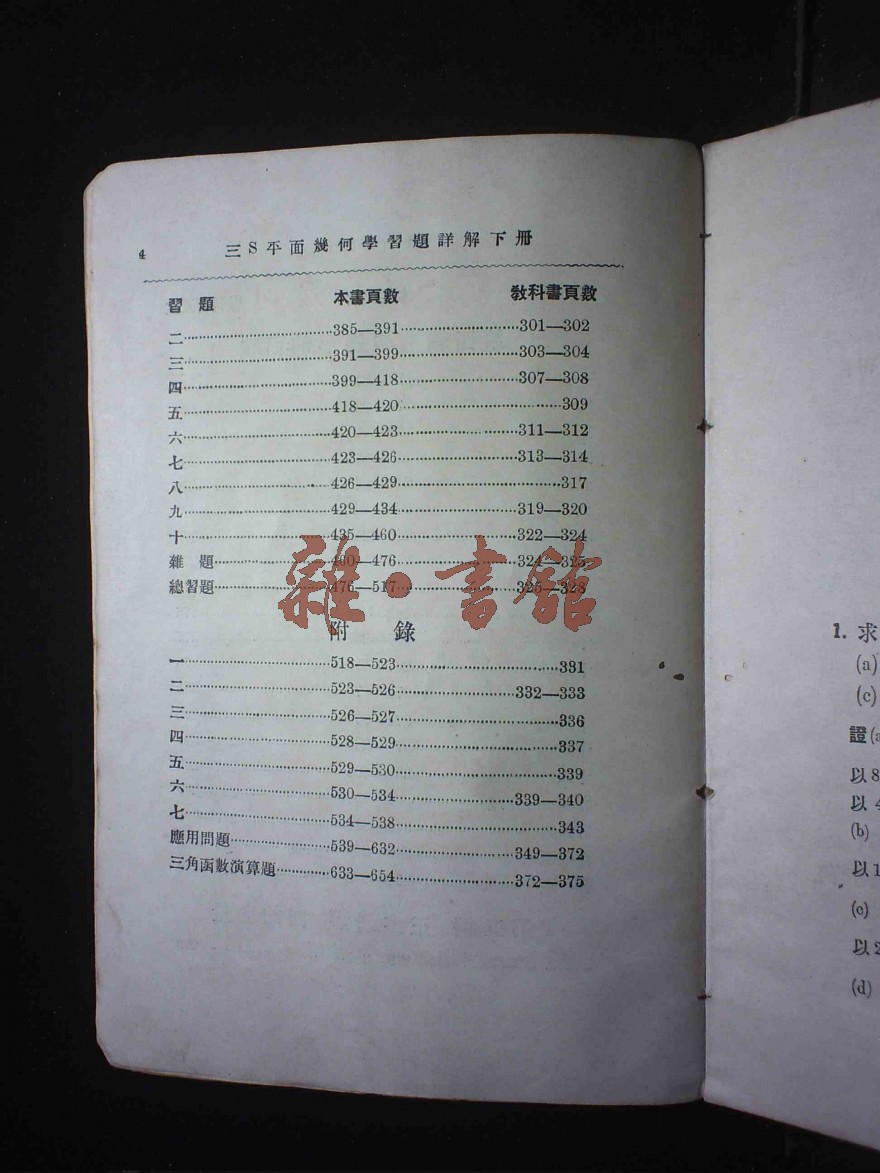 4 三S平面幾何學習題詳解下册
習 題 本書頁數 教科書頁數
二 385—391 301—302
三 391—399 303—304
四 399—418 307—308
五 418—420 309
六 420—423 311—312
七 423—426 313—314
八 426—429 317
九 429—434 319—320
十 435—460 322—324
雜 題 460—476 324—325
總習題 476—517 325—328
雜·書館
附 錄
一 518—523 331
二 523—526 332—333
三 526—527 336
四 528—529 337
五 529—530 339
六 530—534 339—340
七 534—538 343
應用問題 539—632 349—372
三角函數演算題 633—654 372—375
1. 求
(a)
(c)
證(a
以8
以 4
(b)
以1
(c)
以2
(d)